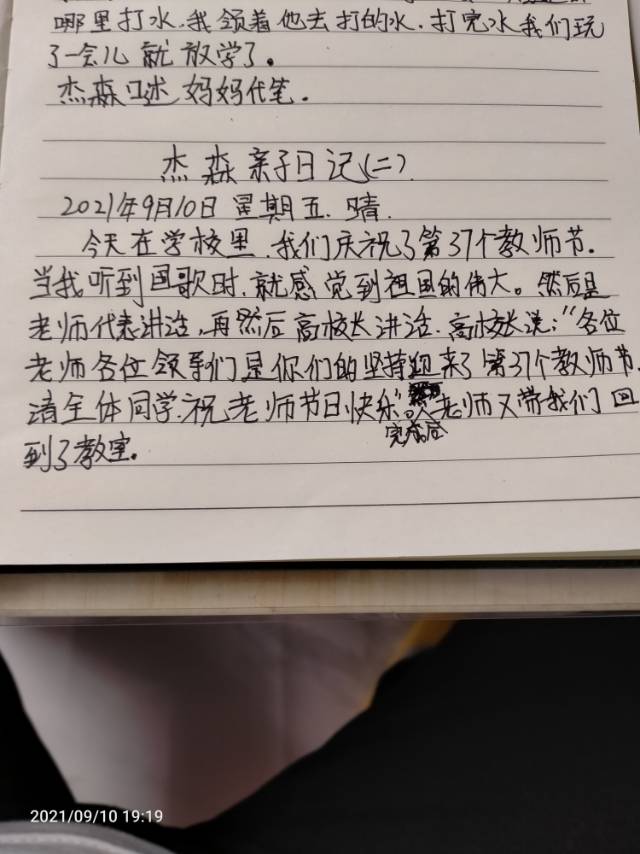 哪里打水,我领着他去打的水,打完水我们玩
了一会儿就放学了。
杰森口述 妈妈代笔.
杰森亲子日记(二)
2021年9月10日 星期五.晴.
今天在学校里,我们庆祝了第37个教师节.
当我听到国歌时,就感觉到祖国的伟大。然后是
老师代表讲话,再然后高校长讲话.高校长说:"各位
老师各位领导们是你们的坚持迎来了第37个教师节.
请全体同学祝老师节日快乐"老师又带我们回
完成后
到了教室.
2021/09/10 19:19